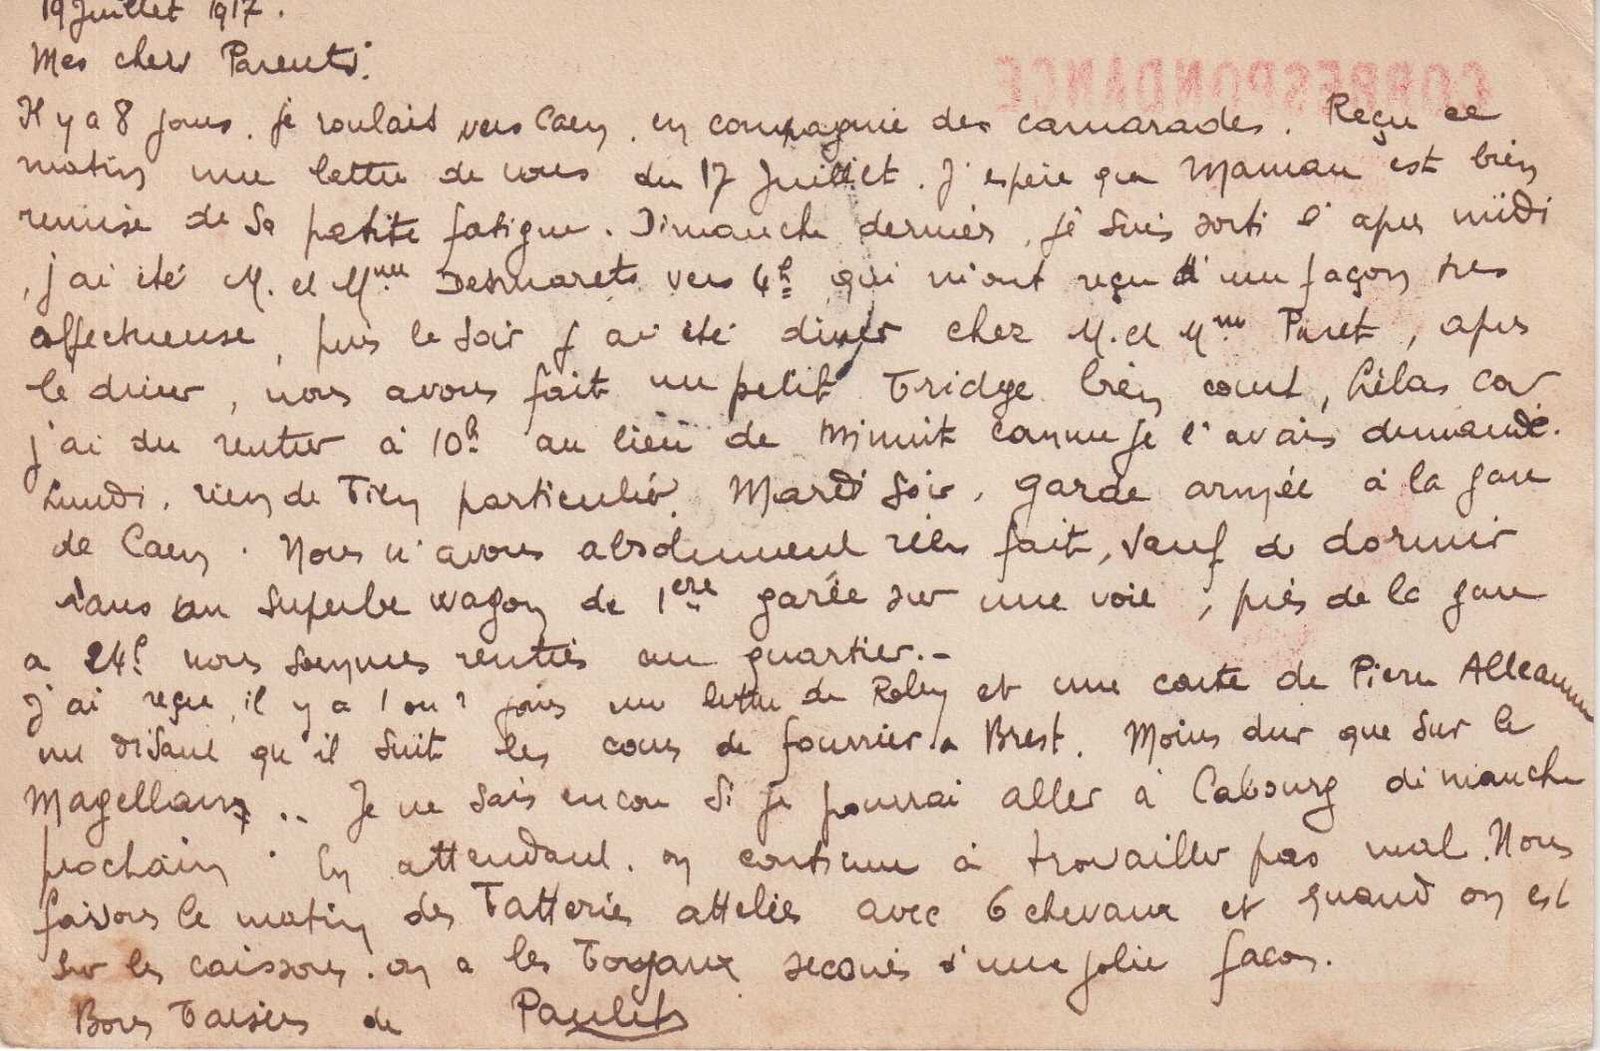 19 Juillet 1917.
Mes chers Parents.
CORRESPONDANCE
Il y a 8 jours. je roulais vers Caen. en compagnie des camarades. Reçu ce
matin une lettre de vous du 17 Juillet. J'espère que Maman est bien
remise de sa petite fatigue. Dimanche dernier, je suis sorti l'apres midi
, j'ai été M. et Mme Desmarets vers 4h qui m'ont reçu d'une façon tres
affectueuse, puis le soir j'ai été diner chez M. et Mme Puret, apres
le diner, nous avons fait un petit Bridge bien court, hélas car
j'ai du rentrer à 10h au lieu de Minuit comme je l'avais demandé.
Lundi. rien de bien particulier. Mardi soir. garde armée à la gare
de Caen. Nous n'avons absolument rien fait, sauf de dormir
dans un superbe wagon de 1ere garée sur une voie, près de la gare
a 24h nous sommes rentrés au quartier.-
J'ai reçu, il y a 1 ou 2 jours une lettre de et une carte de Pierre
me disant qu'il suit les cours de fourrier a Brest. Moins dur que sur le
Magellan... Je ne sais encore si je pourrai aller à Cabourg dimanche
prochain. En attendant. on continue à travailler pas mal. Nous
faisons le matin des Batteries attelées avec 6 chevaux et quand on est
sur les caissons. on a les boyaux secoués d'une jolie facon.
Bons Baisers de